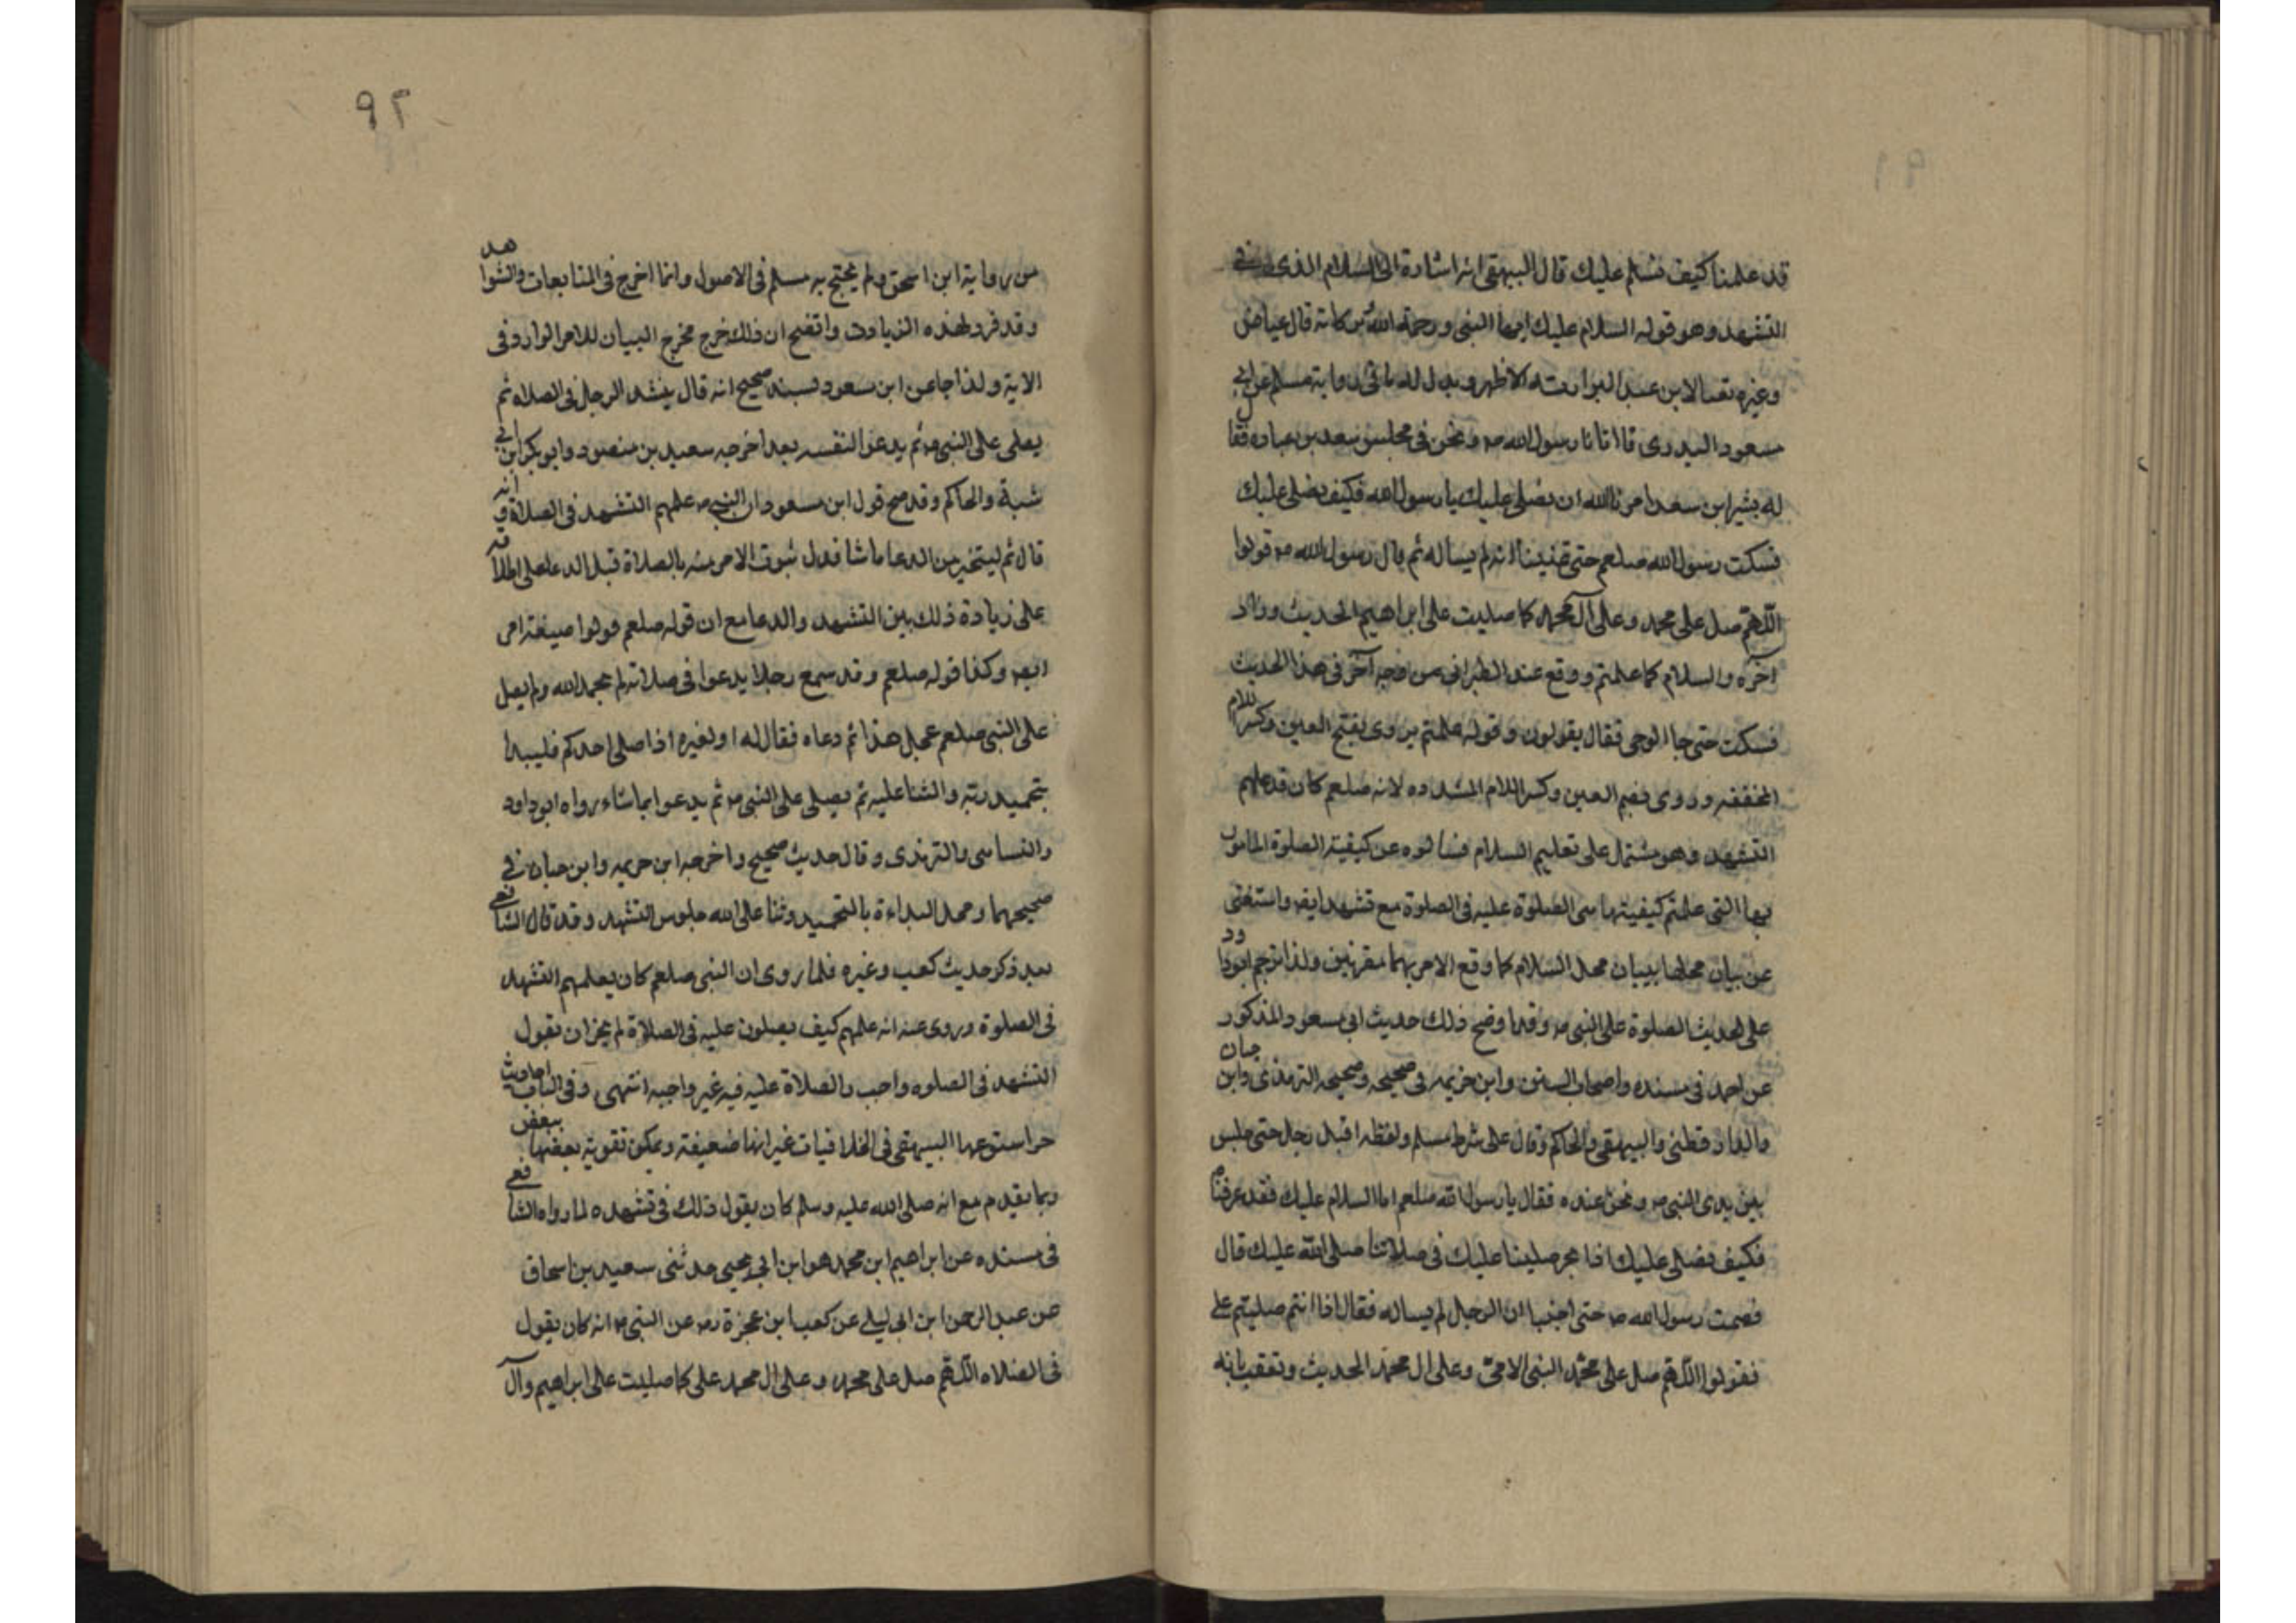 قد علمنا كيف نسلم عليك قال البيهقى انه اشارة الى السلام الذى فى
التشهد وهو قوله السلام عليك ايها النبى ورحمة الله وبركاته قال عياض
وغيره تقالا ابن عبد البر الاظهر ويدل له ما فى رواية مسلم عن ابى
مسعود البدرى قال اتانا رسول الله صم ونحن فى مجلس سعد بن عباده فقال
له بشير ابن سعد امرنا الله ان نصلى عليك يا رسول الله فكيف نصلى عليك
فسكت رسول الله صلعم حتى تمنينا انه لم يساله ثم قال رسول الله صم قولوا
اللهم صل على محمد وعلى آل محمد كما صليت على ابراهيم الحديث وزاد
آخره والسلام كما علمتم ووقع عند الطبرانى من وجه آخر فى هذا الحديث
فسكت حتى جا الوحى فقال يقولون وقوله علمتم يروى بفتح العين وكسر اللام
المخففه وروى بضم العين وكسر اللام المشدده لانه صلعم كان قد علمهم
التشهد وهو مشتمل على تعليم السلام فسالوه عن كيفية الصلوة المامور
بها التى علتم كيفيتها من الصلوة عليه فى الصلوة مع تشهد ايض واستغنى
عن بيان محلها ببيان محل السلام كما وقع الامر بهما مقرنين ولذا ترجم ابو داود
على الحديث الصلوة على النبى صم وقد اوضح ذلك حديث ابى مسعود المذكور
عن احمد فى مسنده واصحاب السنن وابن خزيمه فى صحيحه وصححه الترمذى وابن حبان
والدارقطنى والبيهقى والحاكم وقال على شرط مسلم ولفظه اقبل رجل حتى جلس
بين يدى النبى صم ونحن عنده فقال يا رسول الله صلعم اما السلام عليك فقد عرفناه
فكيف نصلى عليك اذا نحن صلينا عليك فى صلاتنا صلى الله عليك قال
فصمت رسول الله صم حتى اجنبا ان الرجال لم يساله فقال اذا انتم صليتم على
فقولوا اللهم صل على محمد النبى الامى وعلى ال محمد الحديث وتعقب بانه
٩٢
من رواية ابن اسحق ولم يحتج به مسلم فى الاصول وانما اخرج فى المتابعات والشواهد
وقد فرد لهذه الزيادت واتضح ان ذلك خرج مخرج البيان للامر الوارد فى
الاية ولذا جا عن ابن سعود بسند صحيح انه قال يتشهد الرجل فى الصلاه ثم
يصلى على النبى صم ثم يدعوا لنفسه بعد اخرجه سعيد بن منصور وابو بكر ابن ابى
شبة والحاكم وقد صح قول ابن مسعود ان النبى صم علمهم التشهد فى الصلاة وانه
قال ثم ليتخير من الدعا ما شا فدل ثبوت الامر منه بالصلاة قبل الدعا على اطلاقه
على زيادة ذلك بين التشهد والدعا مع ان قوله صلعم قولوا صيغة امر
ايض وكذا قوله صلعم وقد سمع رجلا يدعوا فى صلاته لم يحمد الله ولم يصل
على النبى صلعم عجل هذا ثم دعاه فقال له او لغيره اذا صلى احدكم فليبدأ
بتحميد ربه والثنا عليه ثم يصلى على النبى صم ثم يدعوا بما شاء رواه ابو داود
والنساىى والترمذى وقال حديث صحيح واخرجه ابن حزيمه وابن حبان فى
صحيحهما ومحل البداءة بالتحميد وثنا على الله جلوس التشهد وقد قال الشافعى
بعد ذكر حديث كعب وغيره فلما روى ان النبى صلعم كان يعلمهم التشهد
فى الصلوة وروى عنه انه علمهم كيف يصلون عليه فى الصلاة لم يجز ان نقول
التشهد فى الصلوه واجب والصلاة عليه فيه غير واجبه انتهى وفى الباب احاديث
حر استوعبها البيهقى فى الخلافيات غير انها ضعيفة ويمكن تقوية بعضها ببعض
وبما يقدم مع انه صلى الله عليه وسلم كان يقول ذلك فى تشهده لما رواه الشافعى
فى مسنده عن ابراهيم ابن محمد هو ابن ابى يحيى حدثنى سعيد بن اسحاق
عن عبد الرحمن ابن ابى ليلى عن كعب ابن عجزة رض عن النبى صم انه كان يقول
فى الصلاه اللهم صل على محمد وعلى ال محمد على كما صليت على ابراهيم وآل